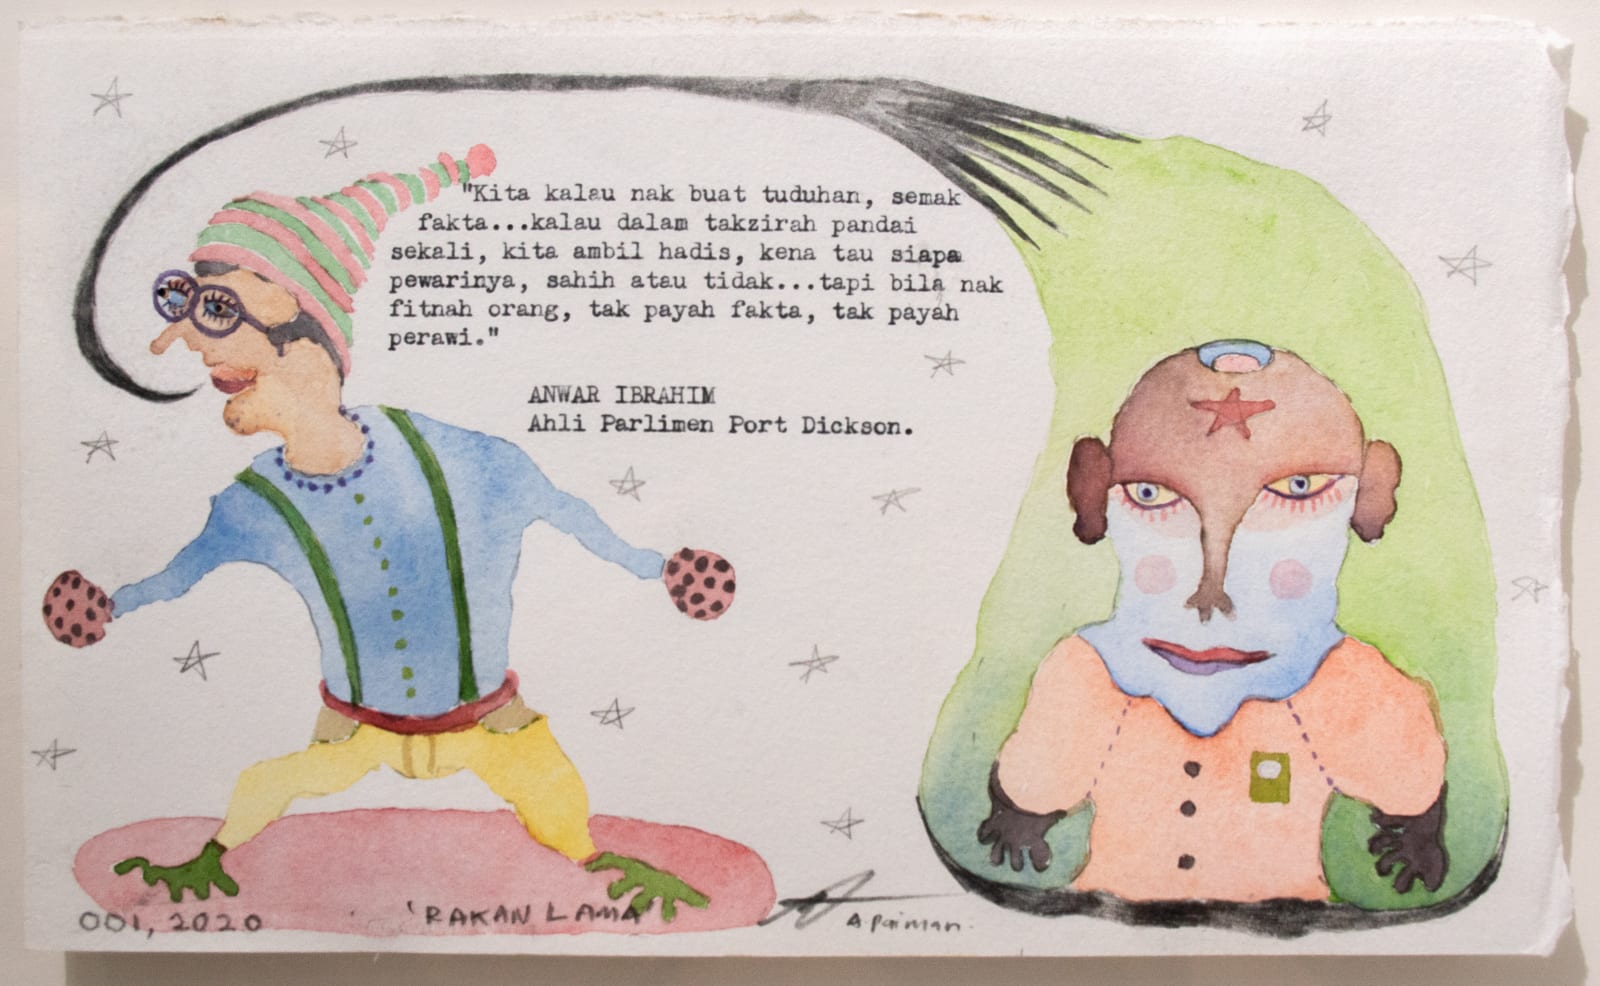 "Kita kalau nak buat tuduhan, semak
fakta...kalau dalam takzirah pandai
sekali, kita ambil hadis, kena tau siapa
pewarinya, sahih atau tidak...tapi bila nak
fitnah orang, tak payah fakta, tak payah
perawi."
ANWAR IBRAHIM
Ahli Parlimen Port Dickson.
001, 2020
'RAKAN LAMA'
A.Paiman.